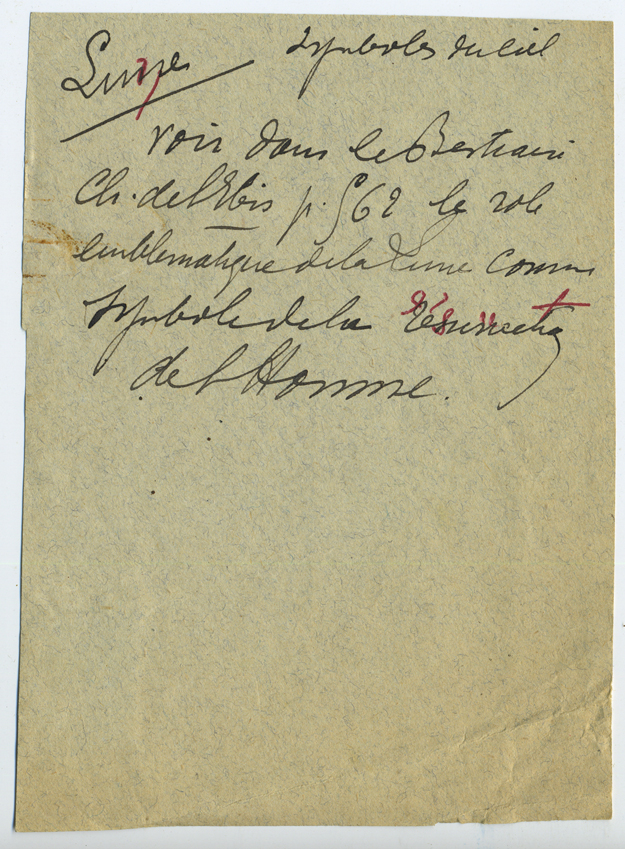 Lune Symboles du ciel
Voir dans le Bestiaire
Ch. de l'Ibis p. 562 le role
emblématique de la Lune comme
Symbole de la Résurrection
de l'Homme.